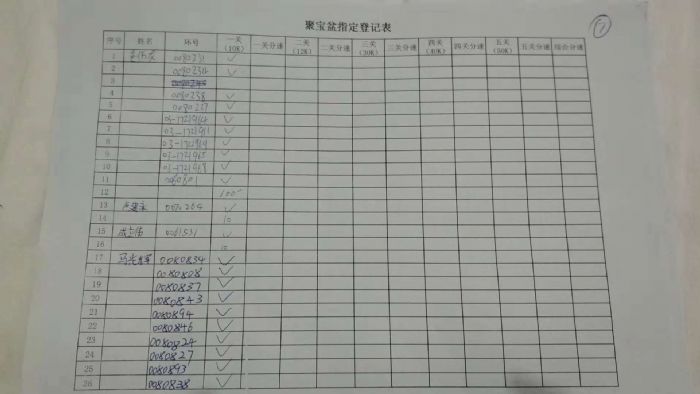 聚宝盆指定登记表
序号 姓名 环号 一关(10K) 一关分速 二关(12K) 二关分速 三关(30K) 三关分速 四关(40K) 四关分速 五关(50K) 五关分速 综合分速
1 0080231 ✓
2 0080234 ✓
3
4 0080238 ✓
5 0080237 ✓
6 03-1721914 ✓
7 03-1721911 ✓
8 03-1721919 ✓
9 03-1721915 ✓
10 03-1721918 ✓
11 0080801 ✓
12 100
13 ✓
14 10
15 0061531 ✓
16 10
17 0080834 ✓
18 0080808 ✓
19 0080837 ✓
20 0080843 ✓
21 0080894 ✓
22 0080846 ✓
23 0080824 ✓
24 0080827 ✓
25 0080893 ✓
26 0080838 ✓